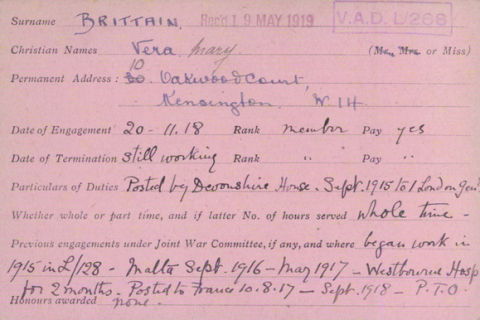 Surname BRITTAIN. Rec'd 19 MAY 1919 V.A.D. L/268
Christian Names Vera Mary (Mr. Mrs. or Miss)
10
Permanent Address: 30. Oakwood Court,
Kensington W14
Date of Engagement 20-11.18 Rank member Pay yes
Date of Termination Still working Rank " Pay "
Particulars of Duties Posted by Devonshire House. Sept. 1915 to 1 London Gen'l
Whether whole or part time, and if latter No. of hours served whole time -
Previous engagements under Joint War Committee, if any, and where began work in
1915 in L/128 - Malta Sept. 1916 - May 1917 - Westbourne Hosp
for 2 months. Posted to France 10.8.17 - Sept. 1918 - P.T.O.
Honours awarded none.